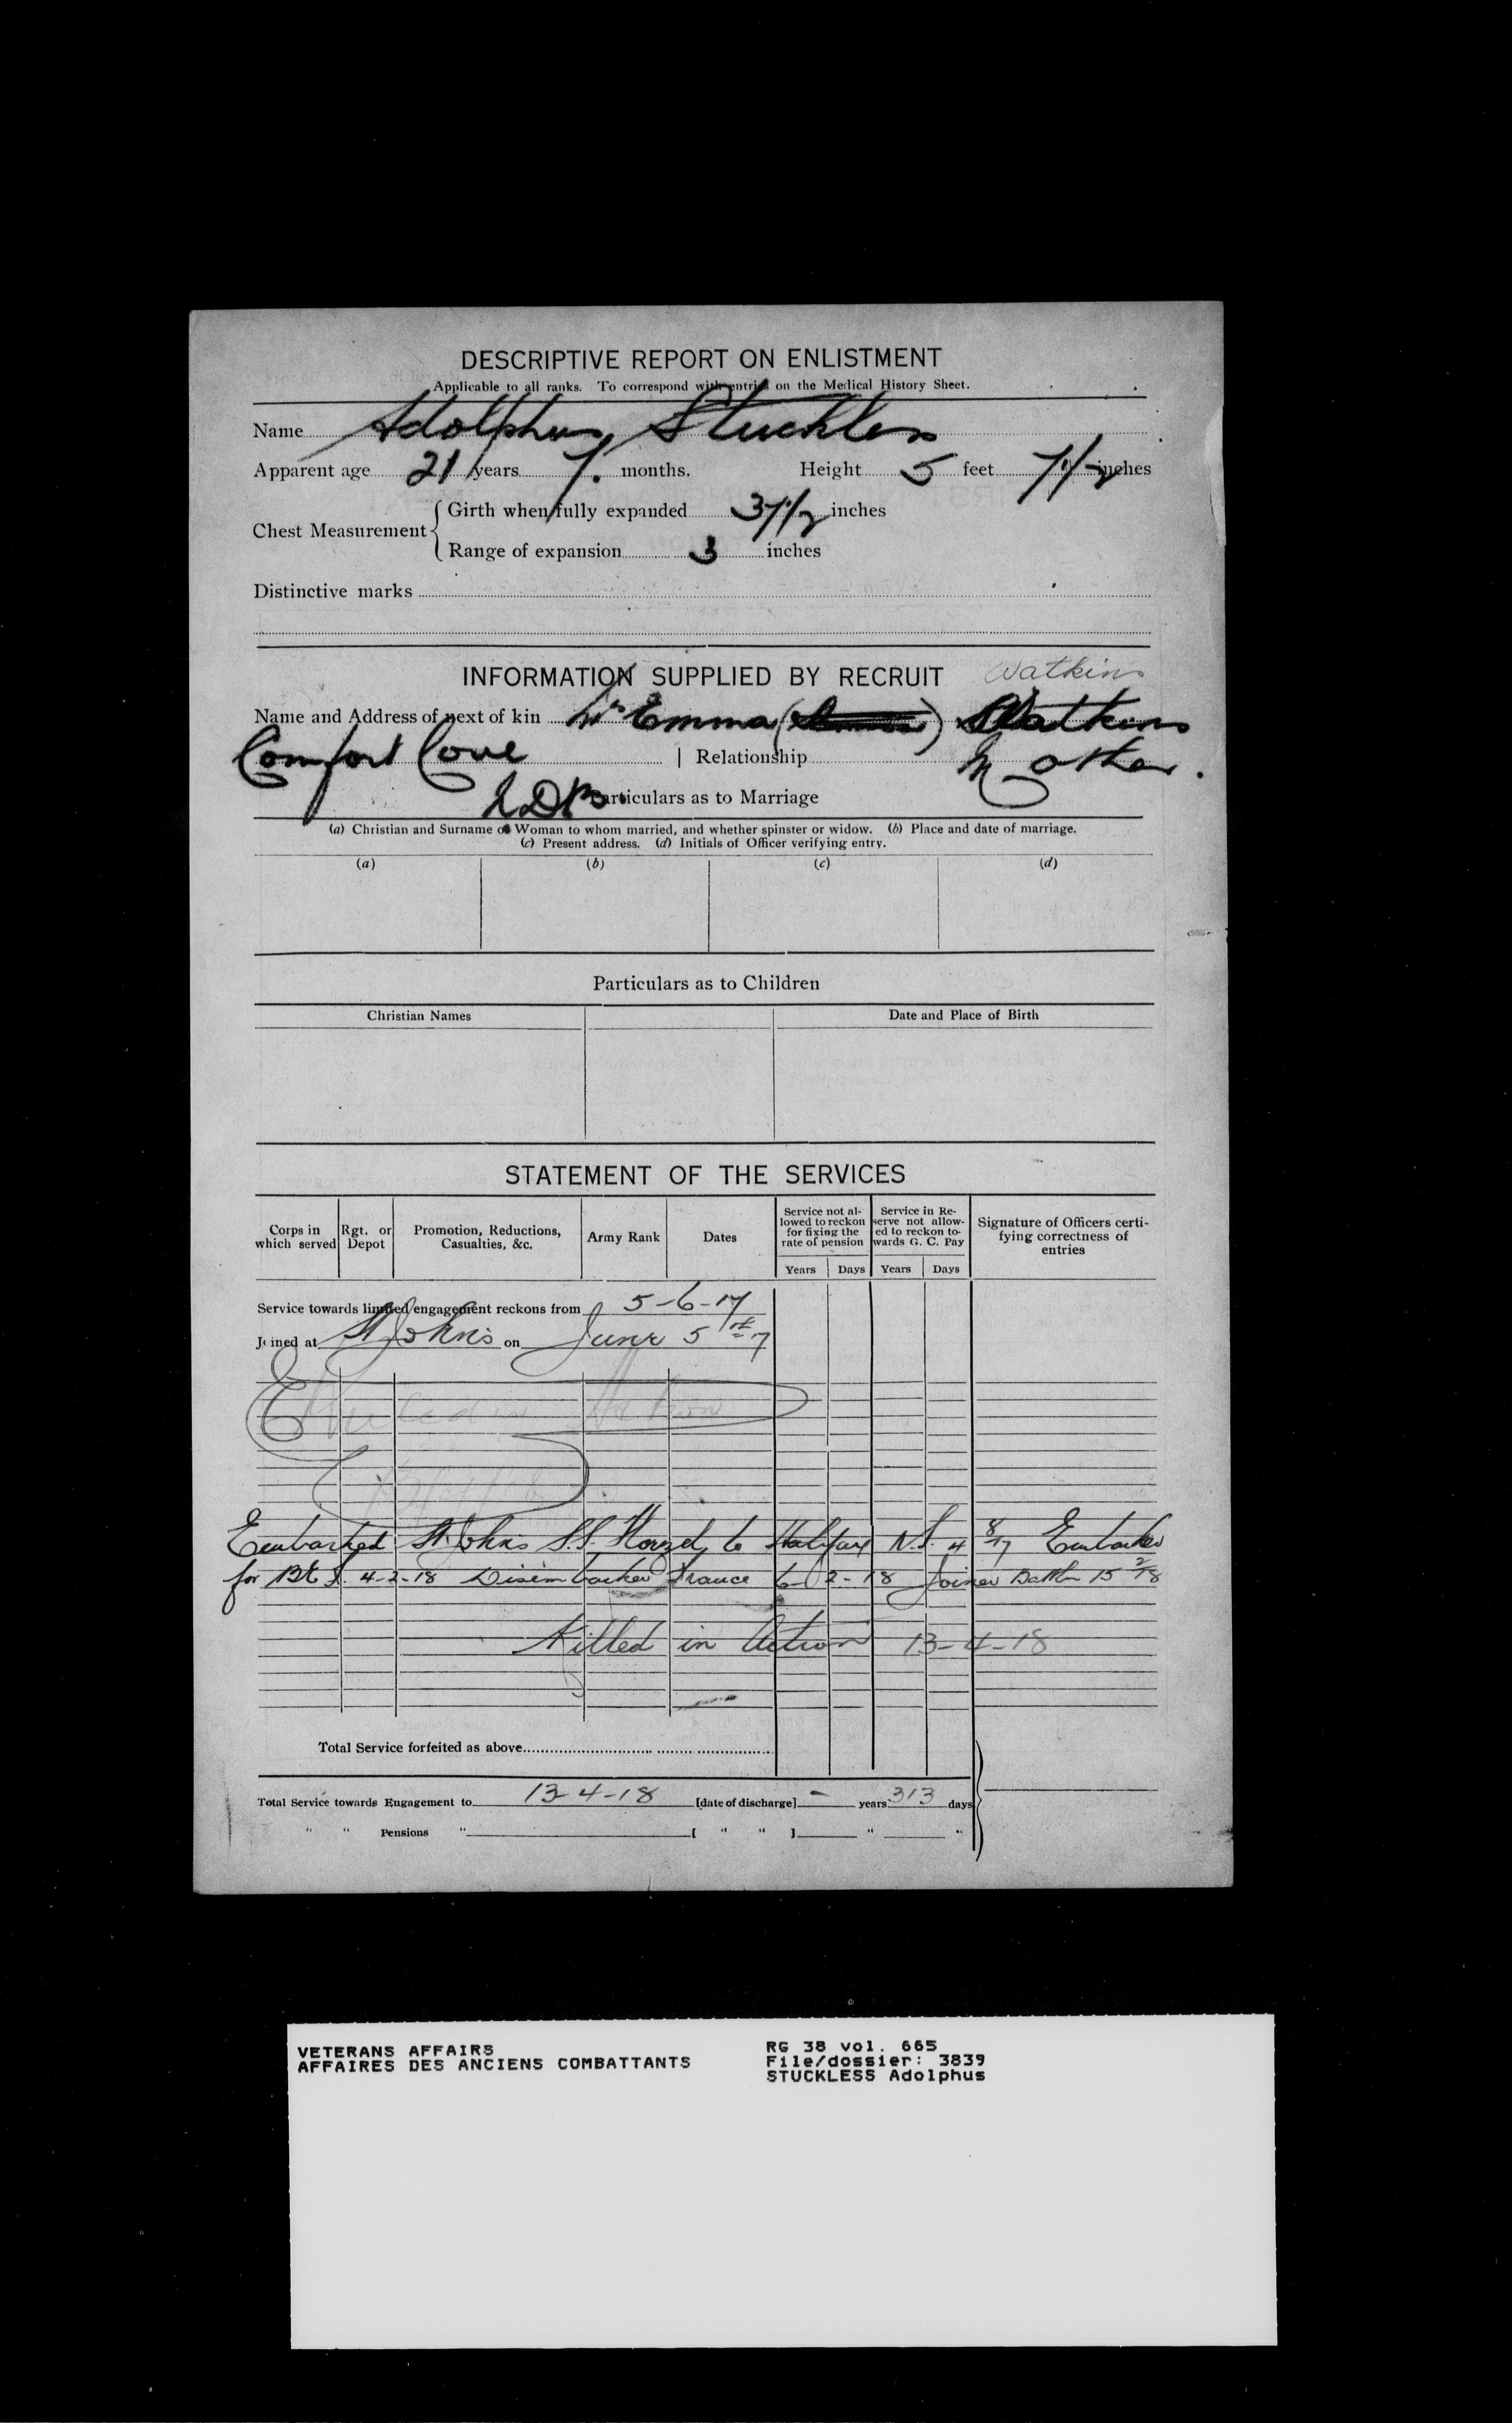 DESCRIPTIVE REPORT ON ENLISTMENT
Applicable to all ranks. To correspond with entries on the Medical History Sheet.
Name Adolphus Stuckless
Apparent age 21 years 7. months. Height 5 feet 7 1/2 inches
Chest Measurement
Girth when fully expanded 37 1/2 inches
Range of expansion 3 inches
Distinctive marks
INFORMATION SUPPLIED BY RECRUIT Watkins
Name and Address of next of kin Mrs Emma ( ) Watkins
Comfort Cove | Relationship Mother.
N.D.B. Particulars as to Marriage
(a) Christian and Surname of Woman to whom married, and whether spinster or widow. (b) Place and date of marriage.
(c) Present address. (d) Initials of Officer verifying entry.
(a) (b) (c) (d)
Particulars as to Children
Christian Names Date and Place of Birth
STATEMENT OF THE SERVICES
Corps in which served Rgt. or Depot Promotion, Reductions, Casualties, &c. Army Rank Dates Service not allowed to reckon for fixing the rate of pension Service in Reserve not allowed to reckon towards G. C. Pay Signature of Officers certifying correctness of entries
Years Days Years Days
Service towards limited engagement reckons from 5-6-17
Joined at St Johns on June 5th 17
Killed in Action
Embarked St Johns S.S. Florizel to Halifax N.S. 4 8/17 Embarked
for B.E.F. 4-2-18 Disembarked France 6-2-18 Joined Battln 15 2/18
Killed in Action 13-4-18
Total Service forfeited as above
Total Service towards Engagement to 13-4-18 [date of discharge] - years 313 days
" " Pensions " [ " " ] " "
VETERANS AFFAIRS RG 38 vol. 665
AFFAIRES DES ANCIENS COMBATTANTS File/dossier: 3839
STUCKLESS Adolphus